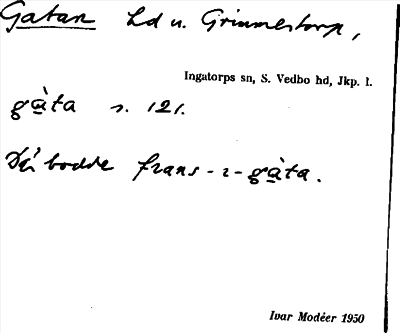 Gatan Ld u. Grimmestorp,
Ingatorps sn, S. Vedbo hd, Jkp. l.
gàta s. 121.
Där bodde frans-ı-gàta.
Ivar Modéer 1950